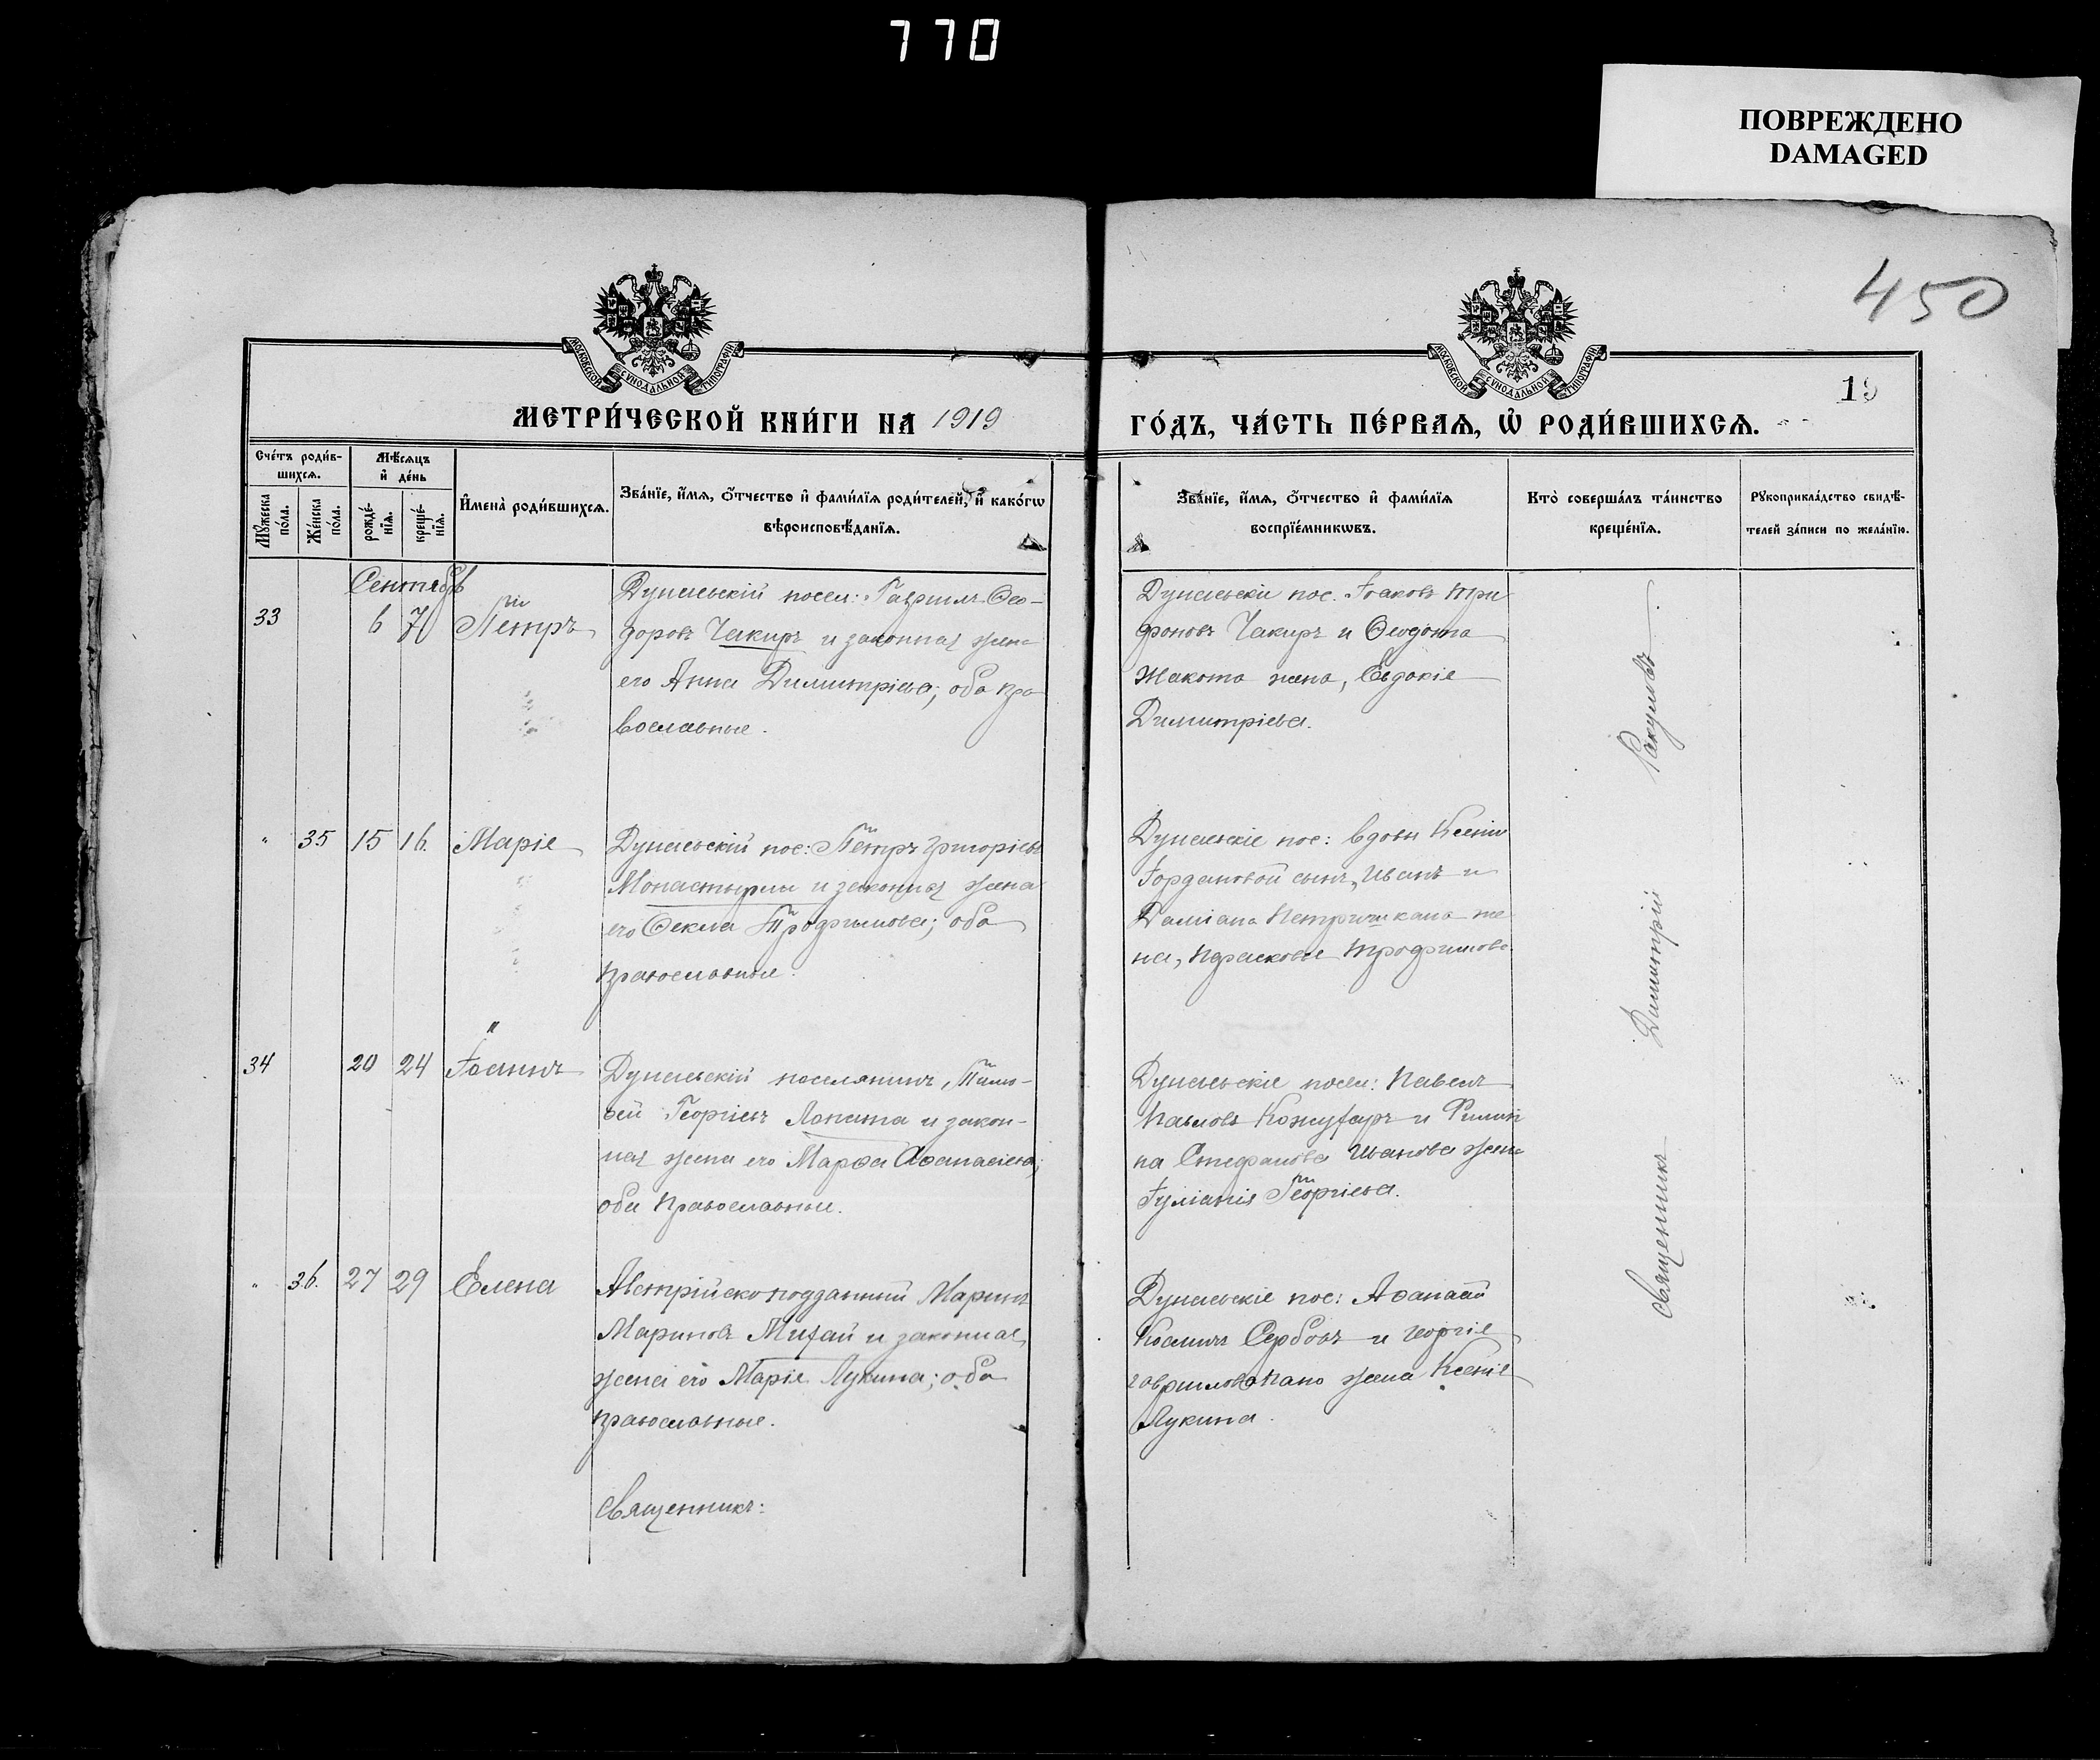 770
ПОВРЕЖДЕНО
DAMAGED
450
МОСКОВСКОЙ СУНОДАЛЬНОЙ ТИПОГРАФІИ
МОСКОВСКОЙ СУНОДАЛЬНОЙ ТИПОГРАФІИ
19
МЕТРИ́ЧЕСКОЙ КНИ́ГИ НА 1919
ГО́ДЪ, ЧА́СТЬ ПЕ́РВАЯ, Ѡ҆ РОДИ́ВШИХСЯ.
Сче́тъ роди́в-
шихся.
Мѣ́сяцъ
и҆ де́нь
Му́жеска
по́ла.
Же́нска
пола.
рожде́-
нїя.
креще́-
нїя.
И҆мена̀ роди́вшихся.
Зва́нїе, и҆́мя, ѻ҆́тчество и҆ фами́лїя роди́телей, и҆ како́гѡ
вѣроисповѣ́данїя.
Зва́нїе, и҆́мя, ѻ҆́тчество и҆ фами́лїя
воспрїе́мникѡвъ.
Кто̀ соверша́лъ та́инство
креще́нїя.
Рукоприкла́дство свидѣ́-
телей за́писи по жела́нїю.
Сентябрь
33 6 7 Петръ
Дунаевскій посел: Гавриилъ Ѳео-
доровъ Чакиръ и законная жена
его Анна Димитріева; оба пра
вославные.
Дунаевскіе пос. Іаковъ Три
фоновъ Чакиръ и Ѳеодота
жена, Евдокіе
Димитріева.
" 35 15 16. Маріе
Дунаевскій пос: Петръ Григоріевъ
Монастырли и законная жена
его Ѳекла Трофимова; оба
православные.
Дунаевскіе пос: вдовы Ксеніи
Іордановой сынъ, Иванъ и
Даміана же
на, Параскове Трофимова
34 20 24 Іоаннъ
Дунаевскій поселянинъ, Тимо-
ѳей Георгіевъ Лопата и закон-
ная жена его Марѳа Аѳанасіева;
оба православные.
Дунаевскіе посел: Павелъ
Павловъ Кожухаръ и Филип
па Стефанова Иванова жена
Іуліанія Георгіева.
" 36. 27 29 Елена
Австрійскоподданный Маринъ
Мариновъ Михай и законная
жена его Маріе Лукина; оба
православные.
Дунаевскіе пос: Аѳанасій
Сербовъ и Георгіе
жена Ксеніе
Лукина.
Священникъ:
Священникъ Димитрій